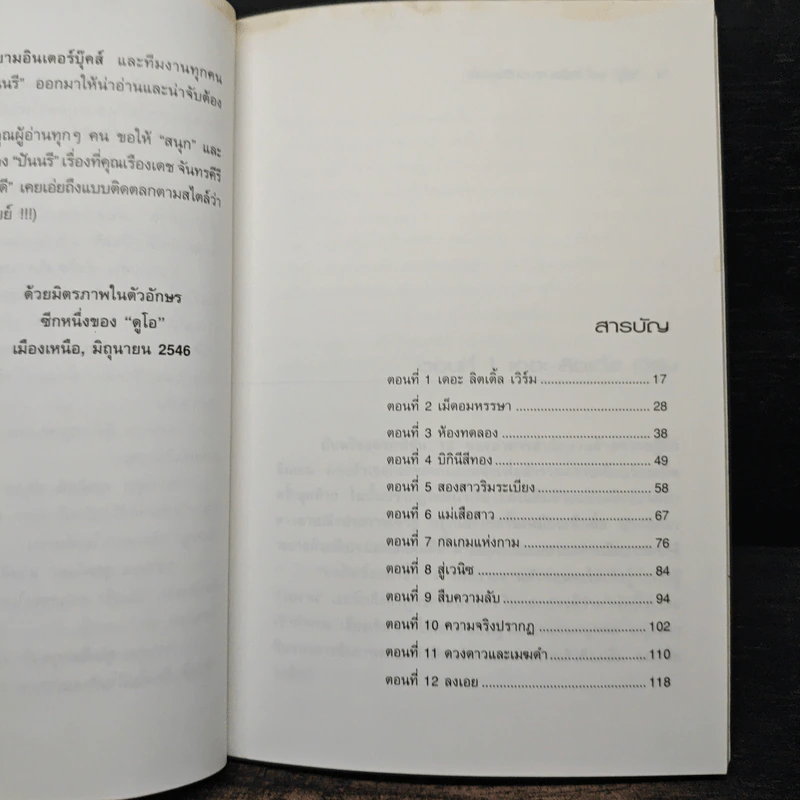 ยามอินเตอร์บุ๊คส์ และทีมงานทุกคน
นนรี" ออกมาให้น่าอ่านและน่าจับต้อง
คุณผู้อ่านทุกๆ คน ขอให้ "สนุก" และ
ง "ปันนรี" เรื่องที่คุณเรืองเดช จันทรคีรี
ดี" เคยเอ่ยถึงแบบติดตลกตามสไตล์ว่า
ย์ !!!)
ด้วยมิตรภาพในตัวอักษร
ซีกหนึ่งของ "ดูโอ"
เมืองเหนือ, มิถุนายน 2546
สารบัญ
ตอนที่ 1 เดอะ ลิตเติ้ล เวิร์ม................................17
ตอนที่ 2 เม็ดอมหรรษา................................28
ตอนที่ 3 ห้องทดลอง................................38
ตอนที่ 4 บิกินีสีทอง................................49
ตอนที่ 5 สองสาวริมระเบียง................................58
ตอนที่ 6 แม่เสือสาว................................67
ตอนที่ 7 กลเกมแห่งกาม................................76
ตอนที่ 8 สู่เวนิซ................................84
ตอนที่ 9 สืบความลับ................................94
ตอนที่ 10 ความจริงปรากฏ................................102
ตอนที่ 11 ดวงดาวและเมฆดำ................................110
ตอนที่ 12 ลงเอย................................118